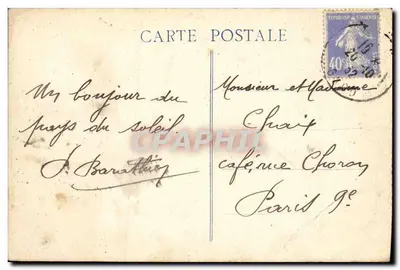 CARTE POSTALE
Un bonjour du
pays du soleil.
Monsieur et Madame
Chaix
café, rue Choron
Paris 9e
40c
CPAPHIL